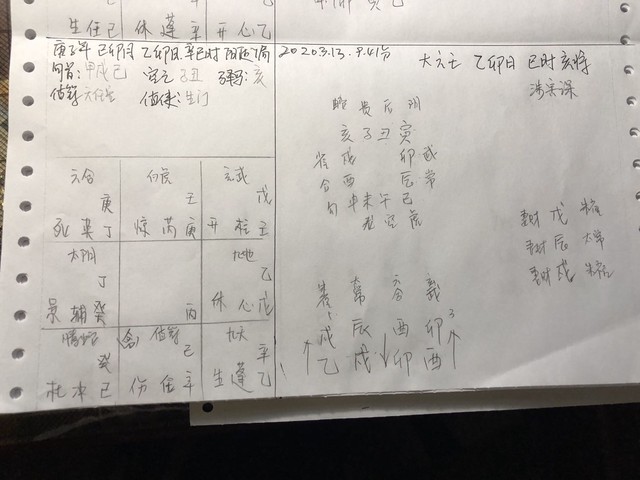 生任己 休蓬辛 开心乙
庚子年 己卯月 乙卯日 辛巳时 阳遁7局
旬首:甲戌己 空亡 子丑 驿马:亥
值符:天任星 值使:生门
六合 白虎 玄武
庚 壬 戊
死英丁 惊芮庚 开柱壬
太阴 九地
丁 乙
景辅癸 丙 休心戊
腾蛇 值符 九天
癸 己 辛
杜冲己 伤任辛 生蓬乙
2020.3.13. 9.41分
大六壬 乙卯日 巳时亥将
涉害课
蛇贵后阴
亥子丑寅
雀戌 卯武
合酉 辰常
勾申未午巳
龙空虎
妻财 戌 朱雀
妻财 辰 太常
妻财 戌 朱雀
雀常合武
戌辰酉卯
乙戌卯酉